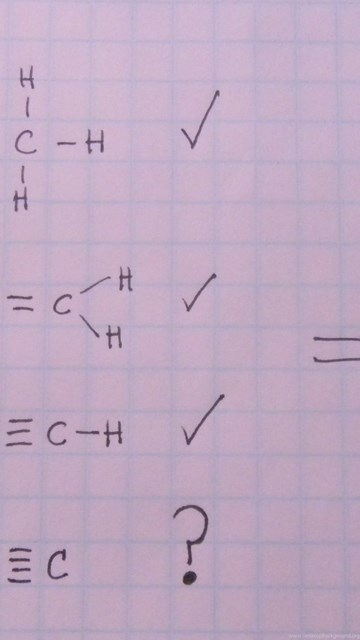 H
|
C – H
|
H
✓
= C
H
H
✓
≡ C – H
✓
≣ C
?